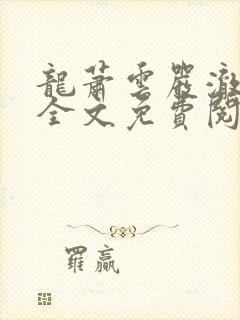 龍蕭雲嚴澈
全文免費閱
羅贏